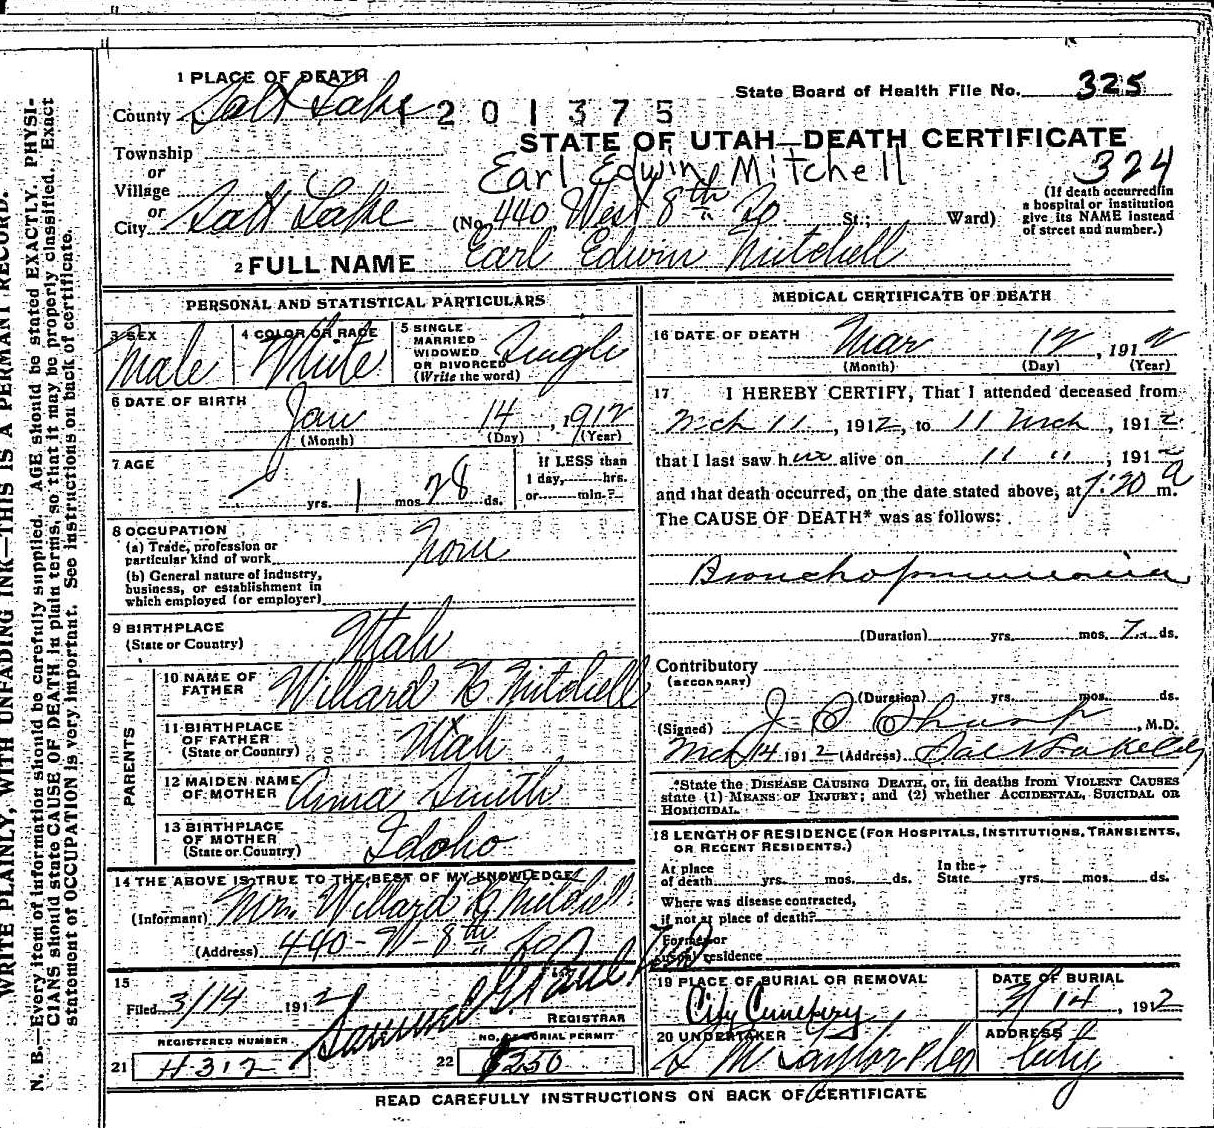 WRITE PLAINLY, WITH UNFADING INK—THIS IS A PERMANT RECORD.
N. B.—Every item of information should be carefully supplied. AGE should be stated EXACTLY. PHYSI-
CIANS should state CAUSE OF DEATH in plain terms, so that it may be properly classified. Exact
statement of OCCUPATION is very important. See instructions on back of certificate.
1 PLACE OF DEATH
State Board of Health File No. 325
County Salt Lake 1201375
STATE OF UTAH—DEATH CERTIFICATE
Township
or
Village
Earl Edwin Mitchell 324
(If death occurred in
a hospital or institution
give its NAME instead
of street and number.)
or
City Salt Lake (No. 440 West 8th So St.; Ward)
2 FULL NAME Earl Edwin Mitchell
PERSONAL AND STATISTICAL PARTICULARS
3 SEX
Male
4 COLOR OR RACE
White
5 SINGLE
MARRIED
WIDOWED
OR DIVORCED
(Write the word)
Single
6 DATE OF BIRTH
Jan 14, 1912
(Month) (Day) (Year)
7 AGE
yrs. 1 mos. 28 ds.
If LESS than
1 day, hrs.
or min.?
8 OCCUPATION
(a) Trade, profession or
particular kind of work None
(b) General nature of industry,
business, or establishment in
which employed (or employer)
9 BIRTHPLACE
(State or Country) Utah
PARENTS
10 NAME OF
FATHER Willard G Mitchell
11 BIRTHPLACE
OF FATHER
(State or Country) Utah
12 MAIDEN NAME
OF MOTHER Anna Smith
13 BIRTHPLACE
OF MOTHER
(State or Country) Idaho
14 THE ABOVE IS TRUE TO THE BEST OF MY KNOWLEDGE
(Informant) Mrs. Willard G Mitchell
(Address) 440-W-8th So
15
Filed 3/14 1912 Samuel G. Paul
REGISTRAR
REGISTERED NUMBER
21 H312
NO. OF BURIAL PERMIT
22 250
MEDICAL CERTIFICATE OF DEATH
16 DATE OF DEATH Mar 12, 1912
(Month) (Day) (Year)
17 I HEREBY CERTIFY, That I attended deceased from
Mch 11, 1912, to 11 Mch, 1912
that I last saw him alive on 11 ", 1912
and that death occurred, on the date stated above, at 7:20 a m.
The CAUSE OF DEATH* was as follows:
Bronchopneumonia
(Duration) yrs. mos. 7 ds.
Contributory
(SECONDARY)
(Duration) yrs. mos. ds.
(Signed) J O Sharp, M.D.
Mch 14 1912 (Address) Salt Lake City
*State the DISEASE CAUSING DEATH, or, in deaths from VIOLENT CAUSES
state (1) MEANS OF INJURY; and (2) whether ACCIDENTAL, SUICIDAL OR
HOMICIDAL.
18 LENGTH OF RESIDENCE (FOR HOSPITALS, INSTITUTIONS, TRANSIENTS,
OR RECENT RESIDENTS.)
At place
of death yrs. mos. ds.
In the
State yrs. mos. ds.
Where was disease contracted,
if not at place of death?
Former or
usual residence
19 PLACE OF BURIAL OR REMOVAL
City Cemetery
DATE OF BURIAL
3/14, 1912
20 UNDERTAKER
S M Taylor & Co
ADDRESS
City
READ CAREFULLY INSTRUCTIONS ON BACK OF CERTIFICATE